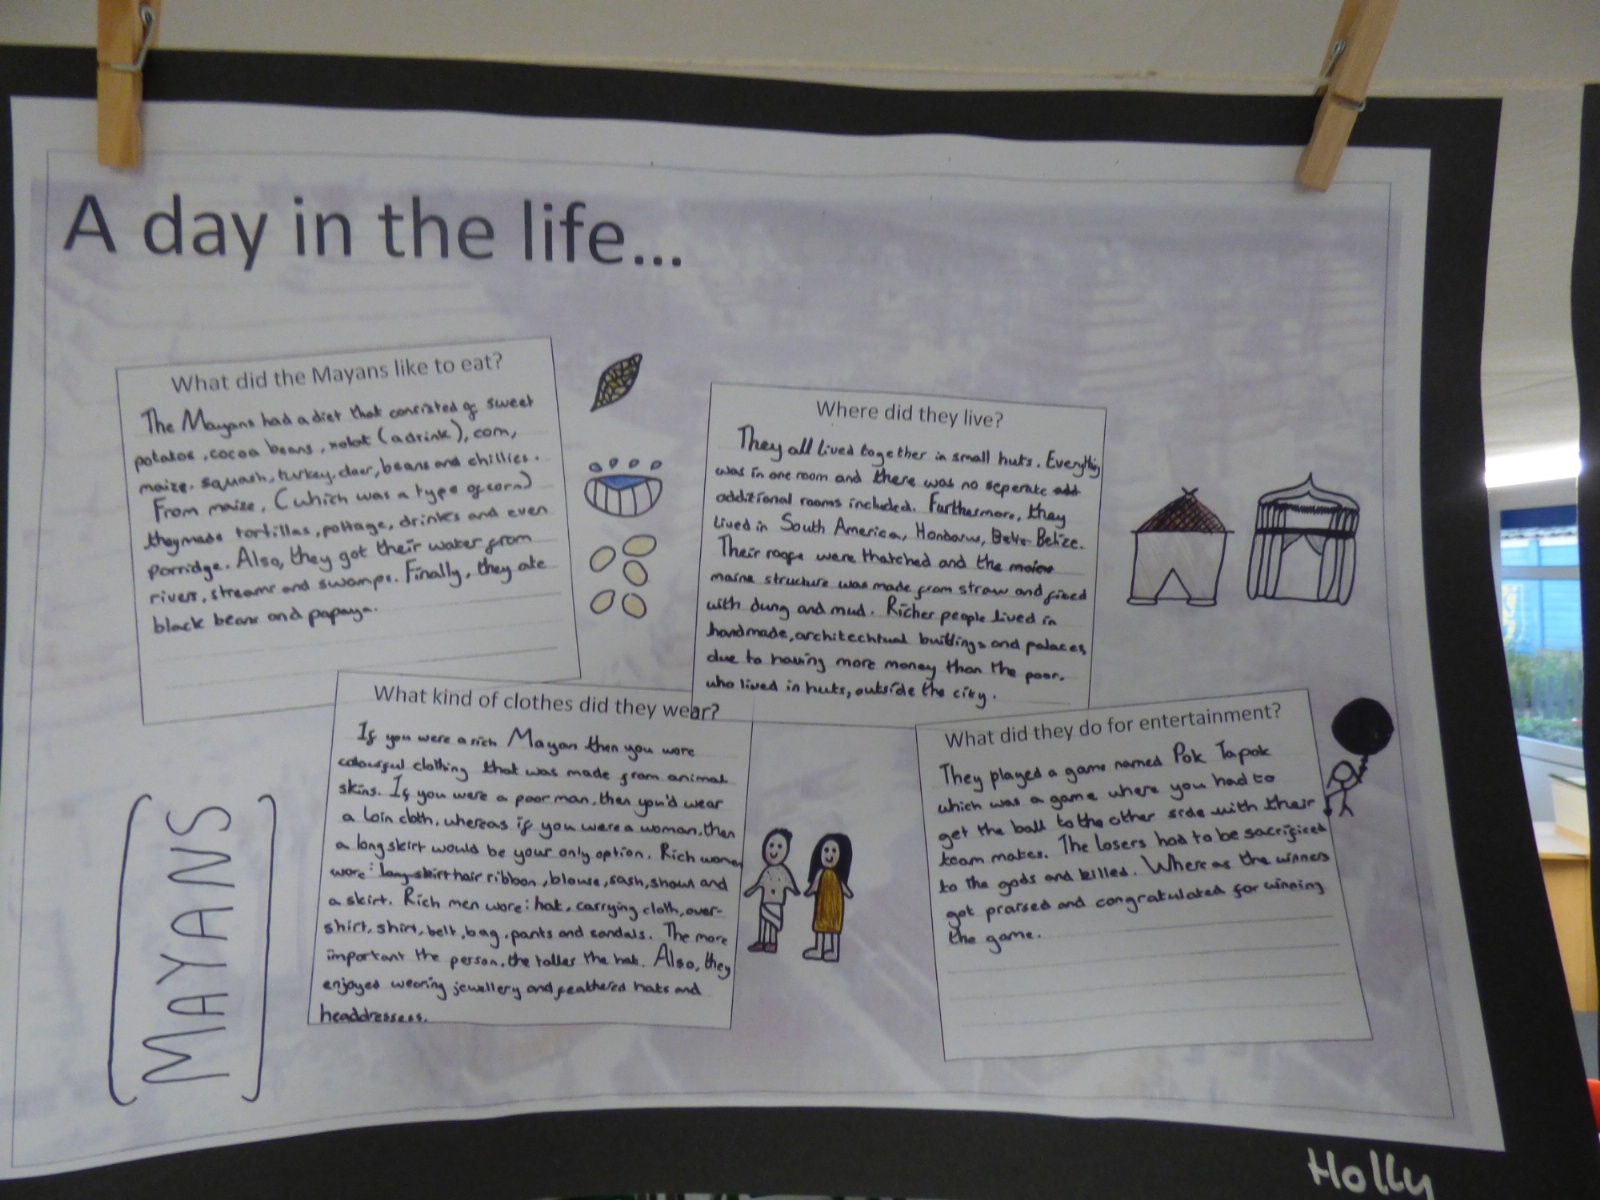 A day in the life...
What did the Mayans like to eat?
The Mayans had a diet that consisted of sweet
potatoe, cocoa beans, xolot (a drink), corn,
maize, squash, turkey, deer, beans and chillies.
From maize, (which was a type of corn)
they made tortillas, pottage, drinks and even
porridge. Also, they got their water from
rivers, streams and swamps. Finally, they ate
black beans and papaya.
Where did they live?
They all lived together in small huts. Everything
was in one room and there was no seperate add
additional rooms included. Furthermore, they
lived in South America, Honbarus, Belis Belize.
Their roofs were thatched and the maine
maine structure was made from straw and fixed
with dung and mud. Richer people lived in
handmade, architechtual buildings and palaces,
due to having more money than the poor,
who lived in huts, outside the city.
What kind of clothes did they wear?
If you were a rich Mayan then you wore
colourful clothing that was made from animal
skins. If you were a poor man, then you'd wear
a loin cloth, whereas if you were a woman, then
a long skirt would be your only option. Rich women
wore: long skirt hair ribbon, blouse, sash, shawl and
a skirt. Rich men wore: hat, carrying cloth, over-
shirt, shirt, belt, bag, pants and sandals. The more
important the person, the taller the hat. Also, they
enjoyed wearing jewellery and feathered hats and
headdresses.
What did they do for entertainment?
They played a game named Pok Tapok
which was a game where you had to
get the ball to the other side with their
team mates. The losers had to be sacrificed
to the gods and killed. Where as the winners
got praised and congratulated for winning
the game.
MAYANS
Holly